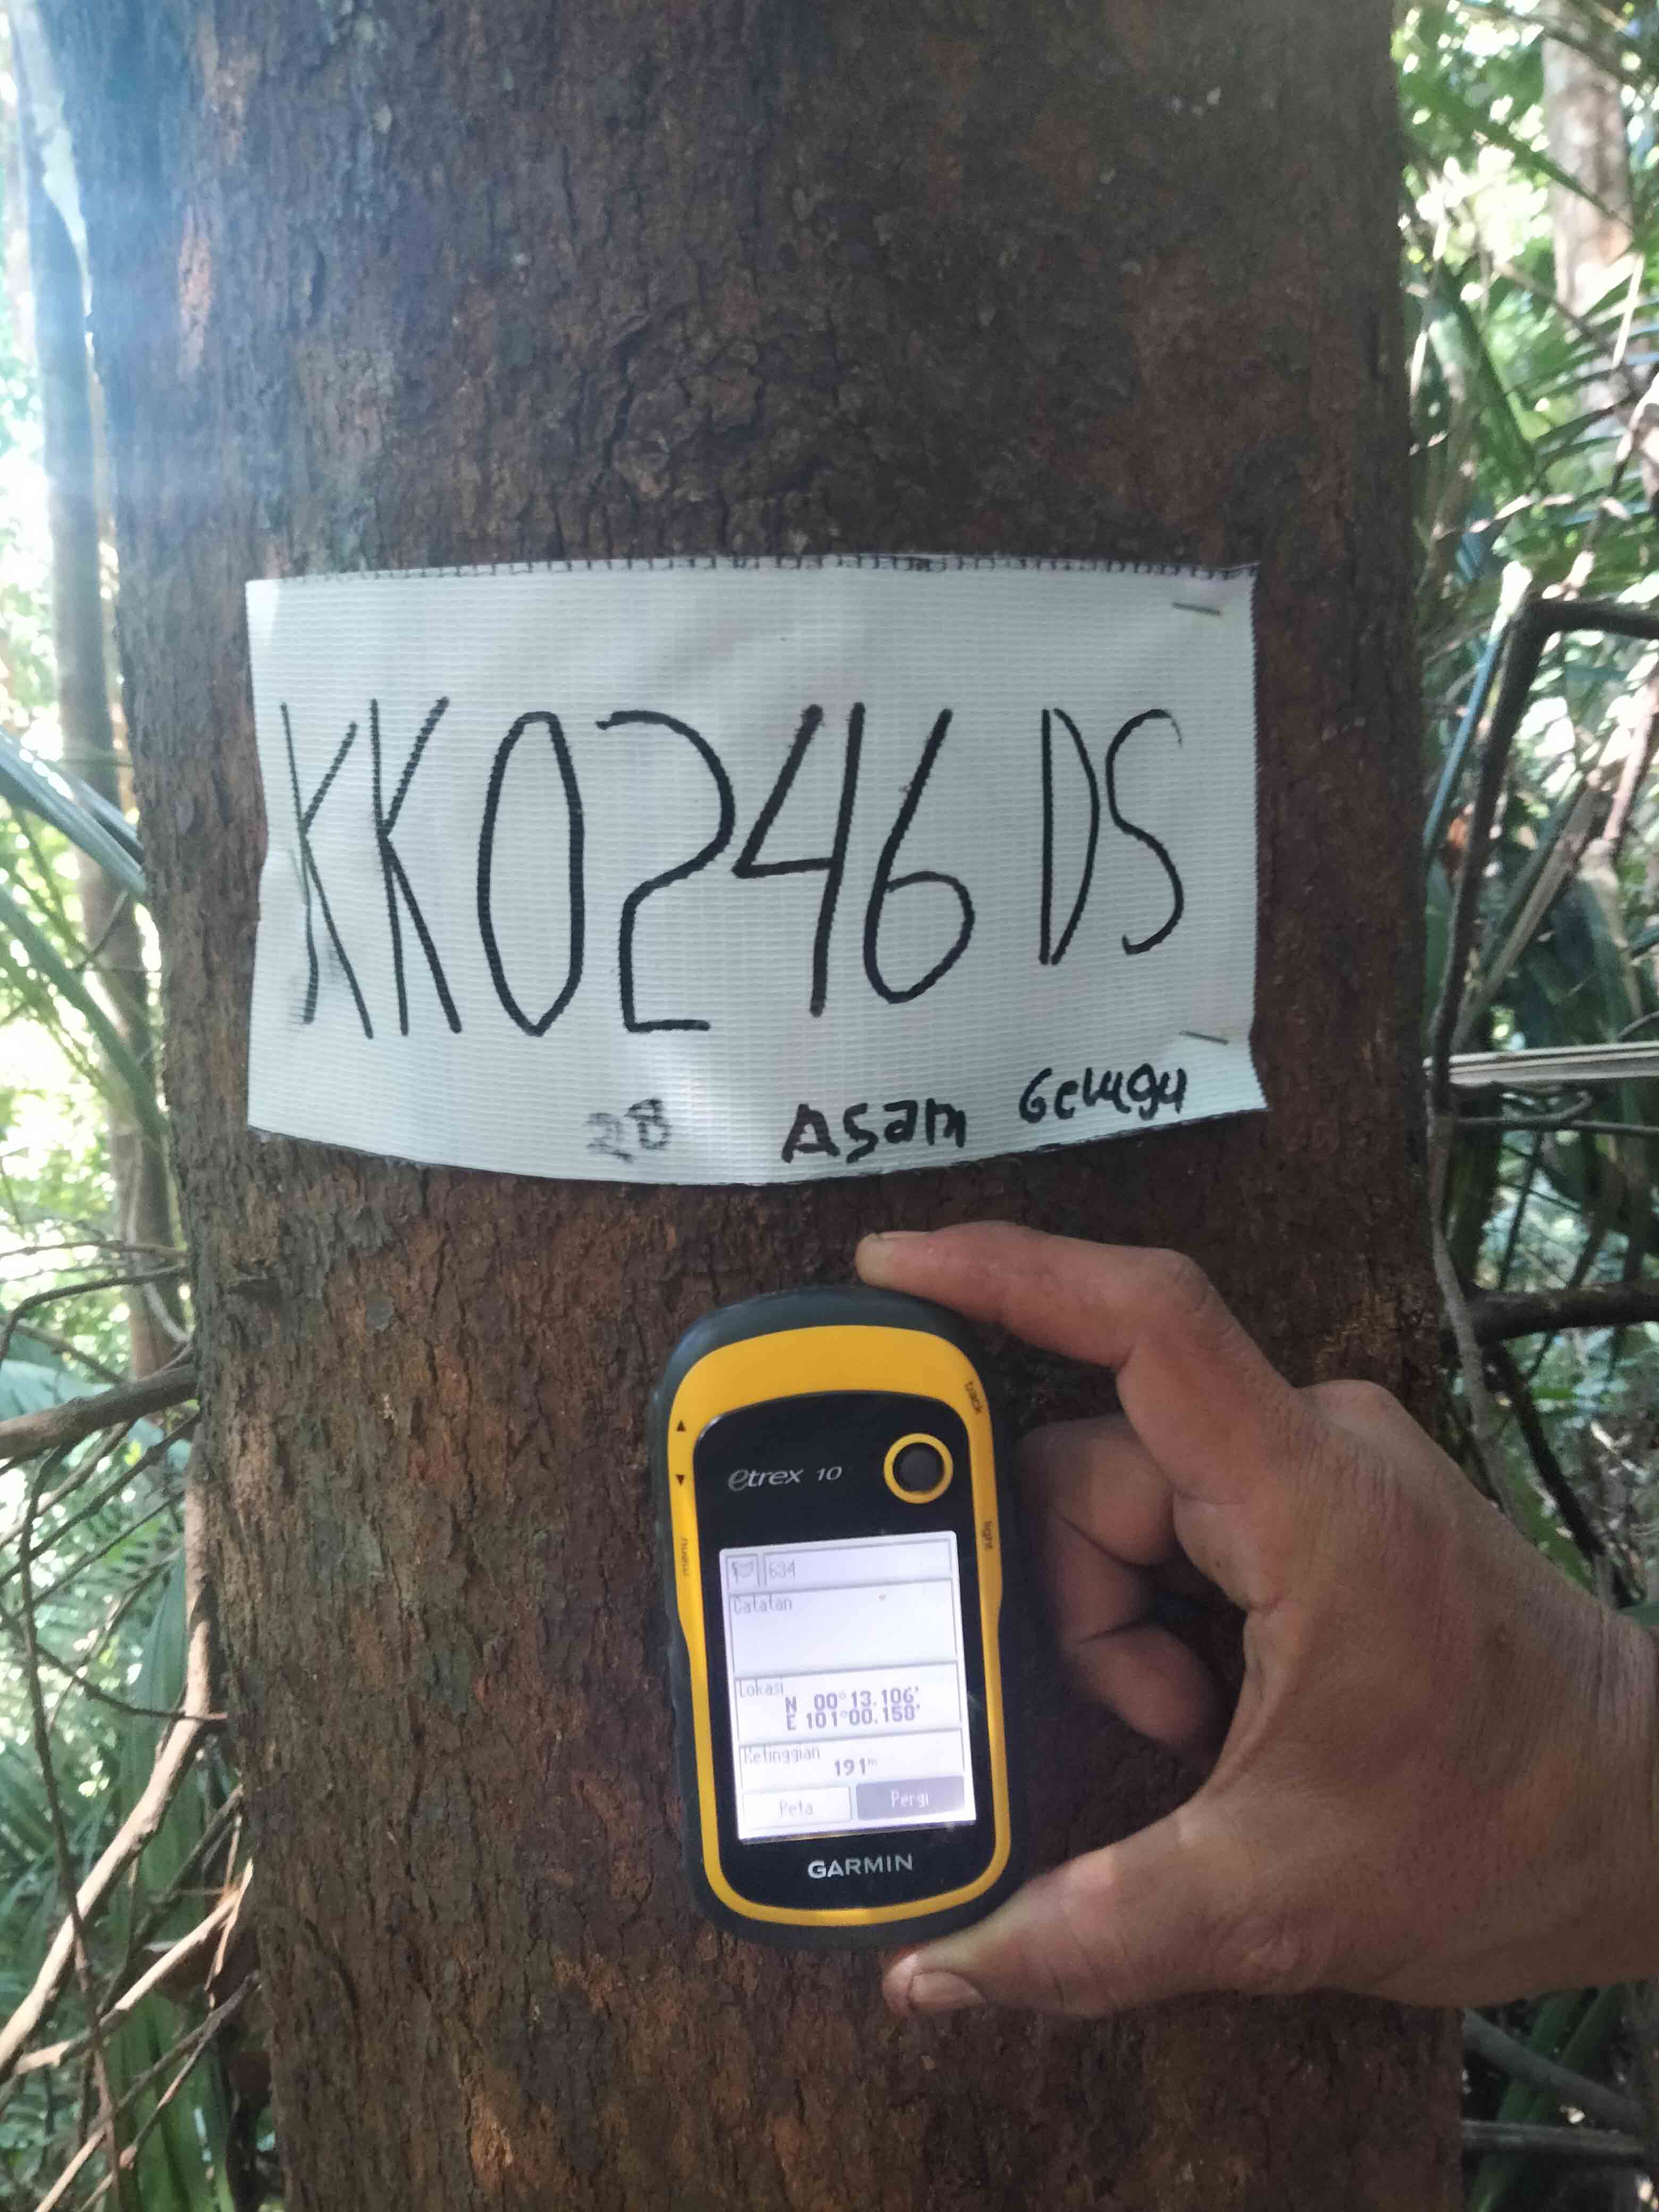 KK0246 DS
28 Asam Gelugu
back
etrex 10
light
menu
634
Catatan
Lokasi
N 00°13.106'
E 101°00.158'
Ketinggian
191m
Peta Pergi
GARMIN